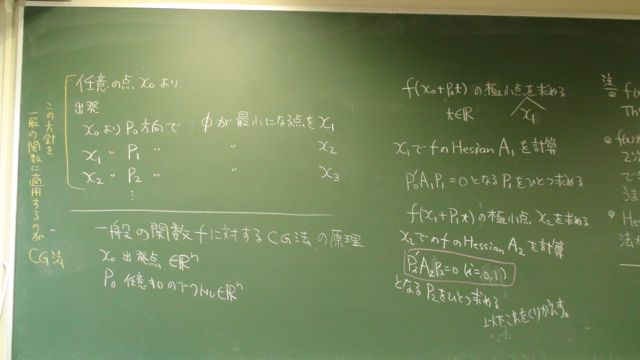 この方針を
一般の関数に適用するのが
CG法
任意の点 x₀ より
出発
x₀より P₀方向で φが最小になる点を x₁
x₁ 〃 P₁ 〃 〃 x₂
x₂ 〃 P₂ 〃 〃 x₃
⋮
一般の関数fに対するCG法の原理
x₀ 出発点 ∈ℝⁿ
P₀ 任意≠0のベクトル∈ℝⁿ
f(x₀+P₀t) の極小点を求める
t∈ℝ x₁
x₁でfのHessian A₁を計算
P₀'A₁P₁=0となるP₁をひとつ求める
f(x₁+P₁t)の極小点 x₂を求める
x₂でのfのHessian A₂を計算
A₂P₂=0 (i=0,1)
となるP₂をひとつ求める
以下これをくりかえす。
注
f(x
Th
f(x)が
2次
でき
うま
He
法